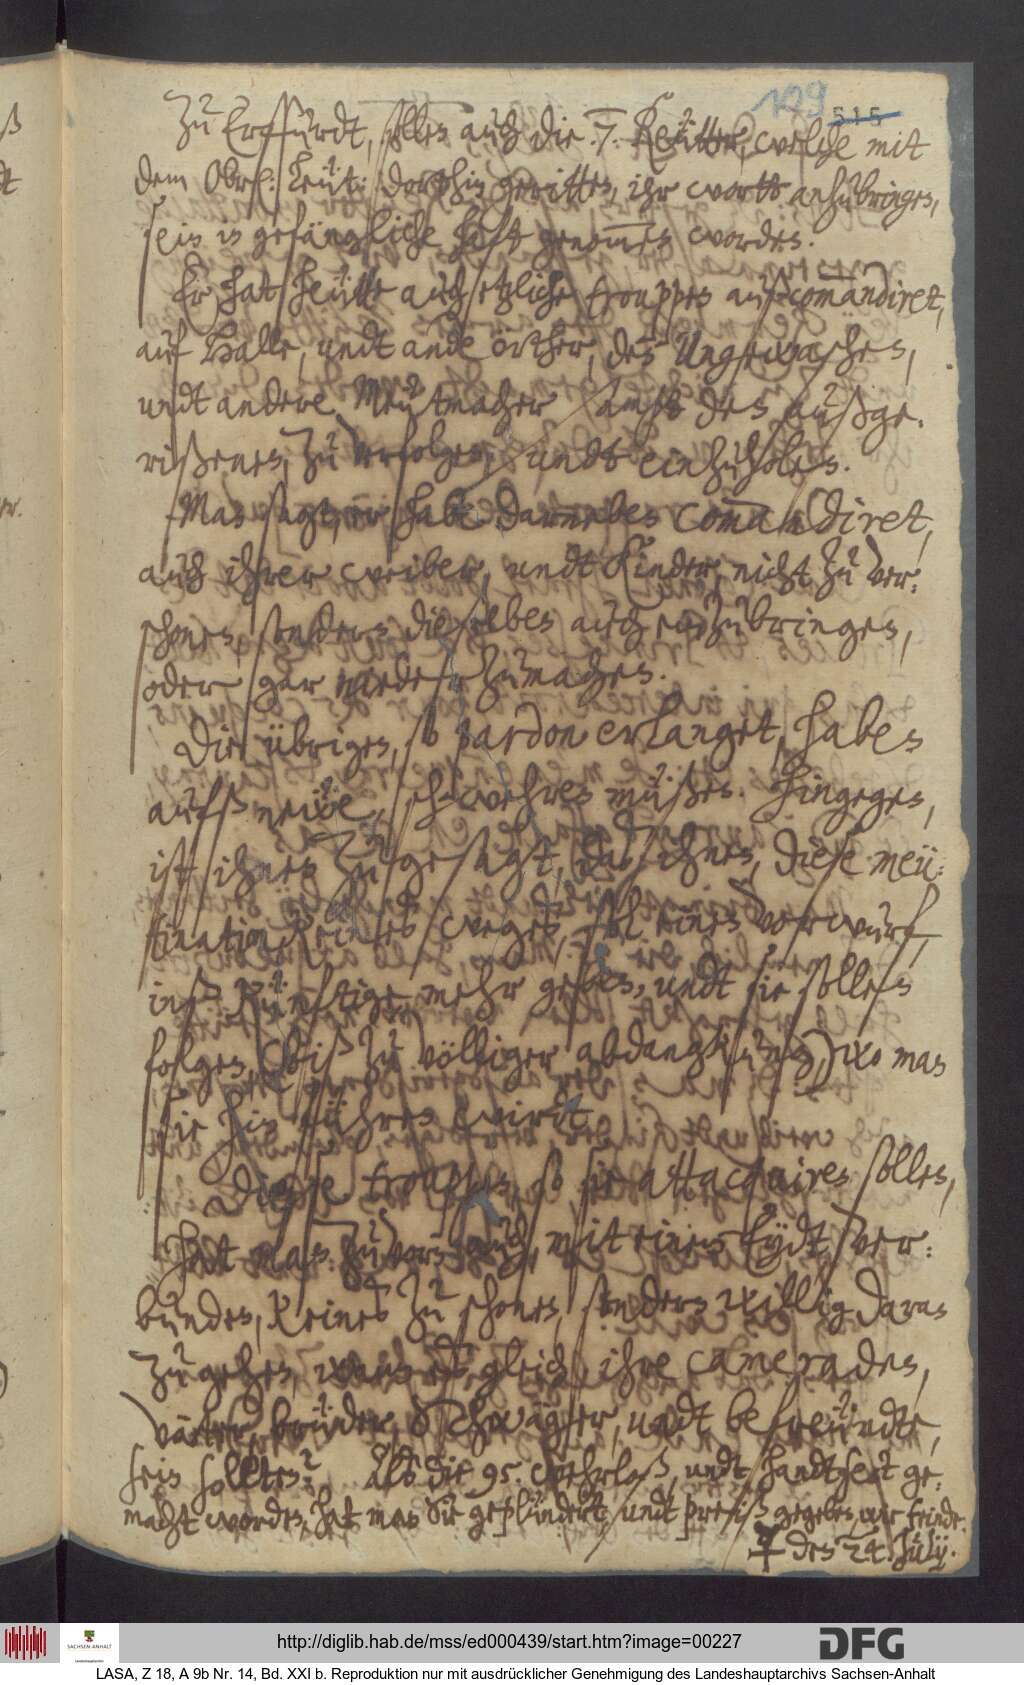 129 515
Zu Erffurdt, sollen auch die .7. Reütter, welche mit
dem Obrl: Leüt: dorthin geritten, ihr wortt anzubringen,
sein in gefängliche haft genom̄en worden.
Er hat heütte auch etzliche trouppen auß com̄andiret,
auf Halle, undt andere örther, den Ungerischen,
undt andere Meütmacher sampt den außge-
rißenen, zu verfolgen, undt einzuholen.
Man sagt, er habe darneben com̄andiret,
auch ihrer weiber, undt Kinder, nicht zu ver-
schonen, sondern dieselben auch umbzubringen,
oder gar nieder zumachen.
Die übrigen, so pardon erlanget, haben
aufß neüe, schwehren müßen. Hingegen,
ist ihnen zugesagt, das ihnen, diese meü-
tination keines weges, soll einen vorwurf,
inß künftige mehr geben, undt sie sollen
folgen (biß zu völliger abdanckung) wo man
sie hin führen wirdt.
Diese trouppen, so sie attacquiren sollen,
hat man zuvor auch, mit einem Eydt ver-
bunden, keines zu schonen, sondern willig daran
zugehen, wann es gleich ihre cameraden,
väter, brüder, Schwäger, undt befreündte,
sein sollten. Alß die 95. wehrloß, undt handtfest ge-
macht worden, hat man Sie geplündert, undt preiß gegeben, wie feinde.
den 24. Julij.
ß
dt
er.
)
http://diglib.hab.de/mss/ed000439/start.htm?image=00227
SACHSEN-ANHALT
Landeshauptarchiv
DFG
LASA, Z 18, A 9b Nr. 14, Bd. XXI b. Reproduktion nur mit ausdrücklicher Genehmigung des Landeshauptarchivs Sachsen-Anhalt